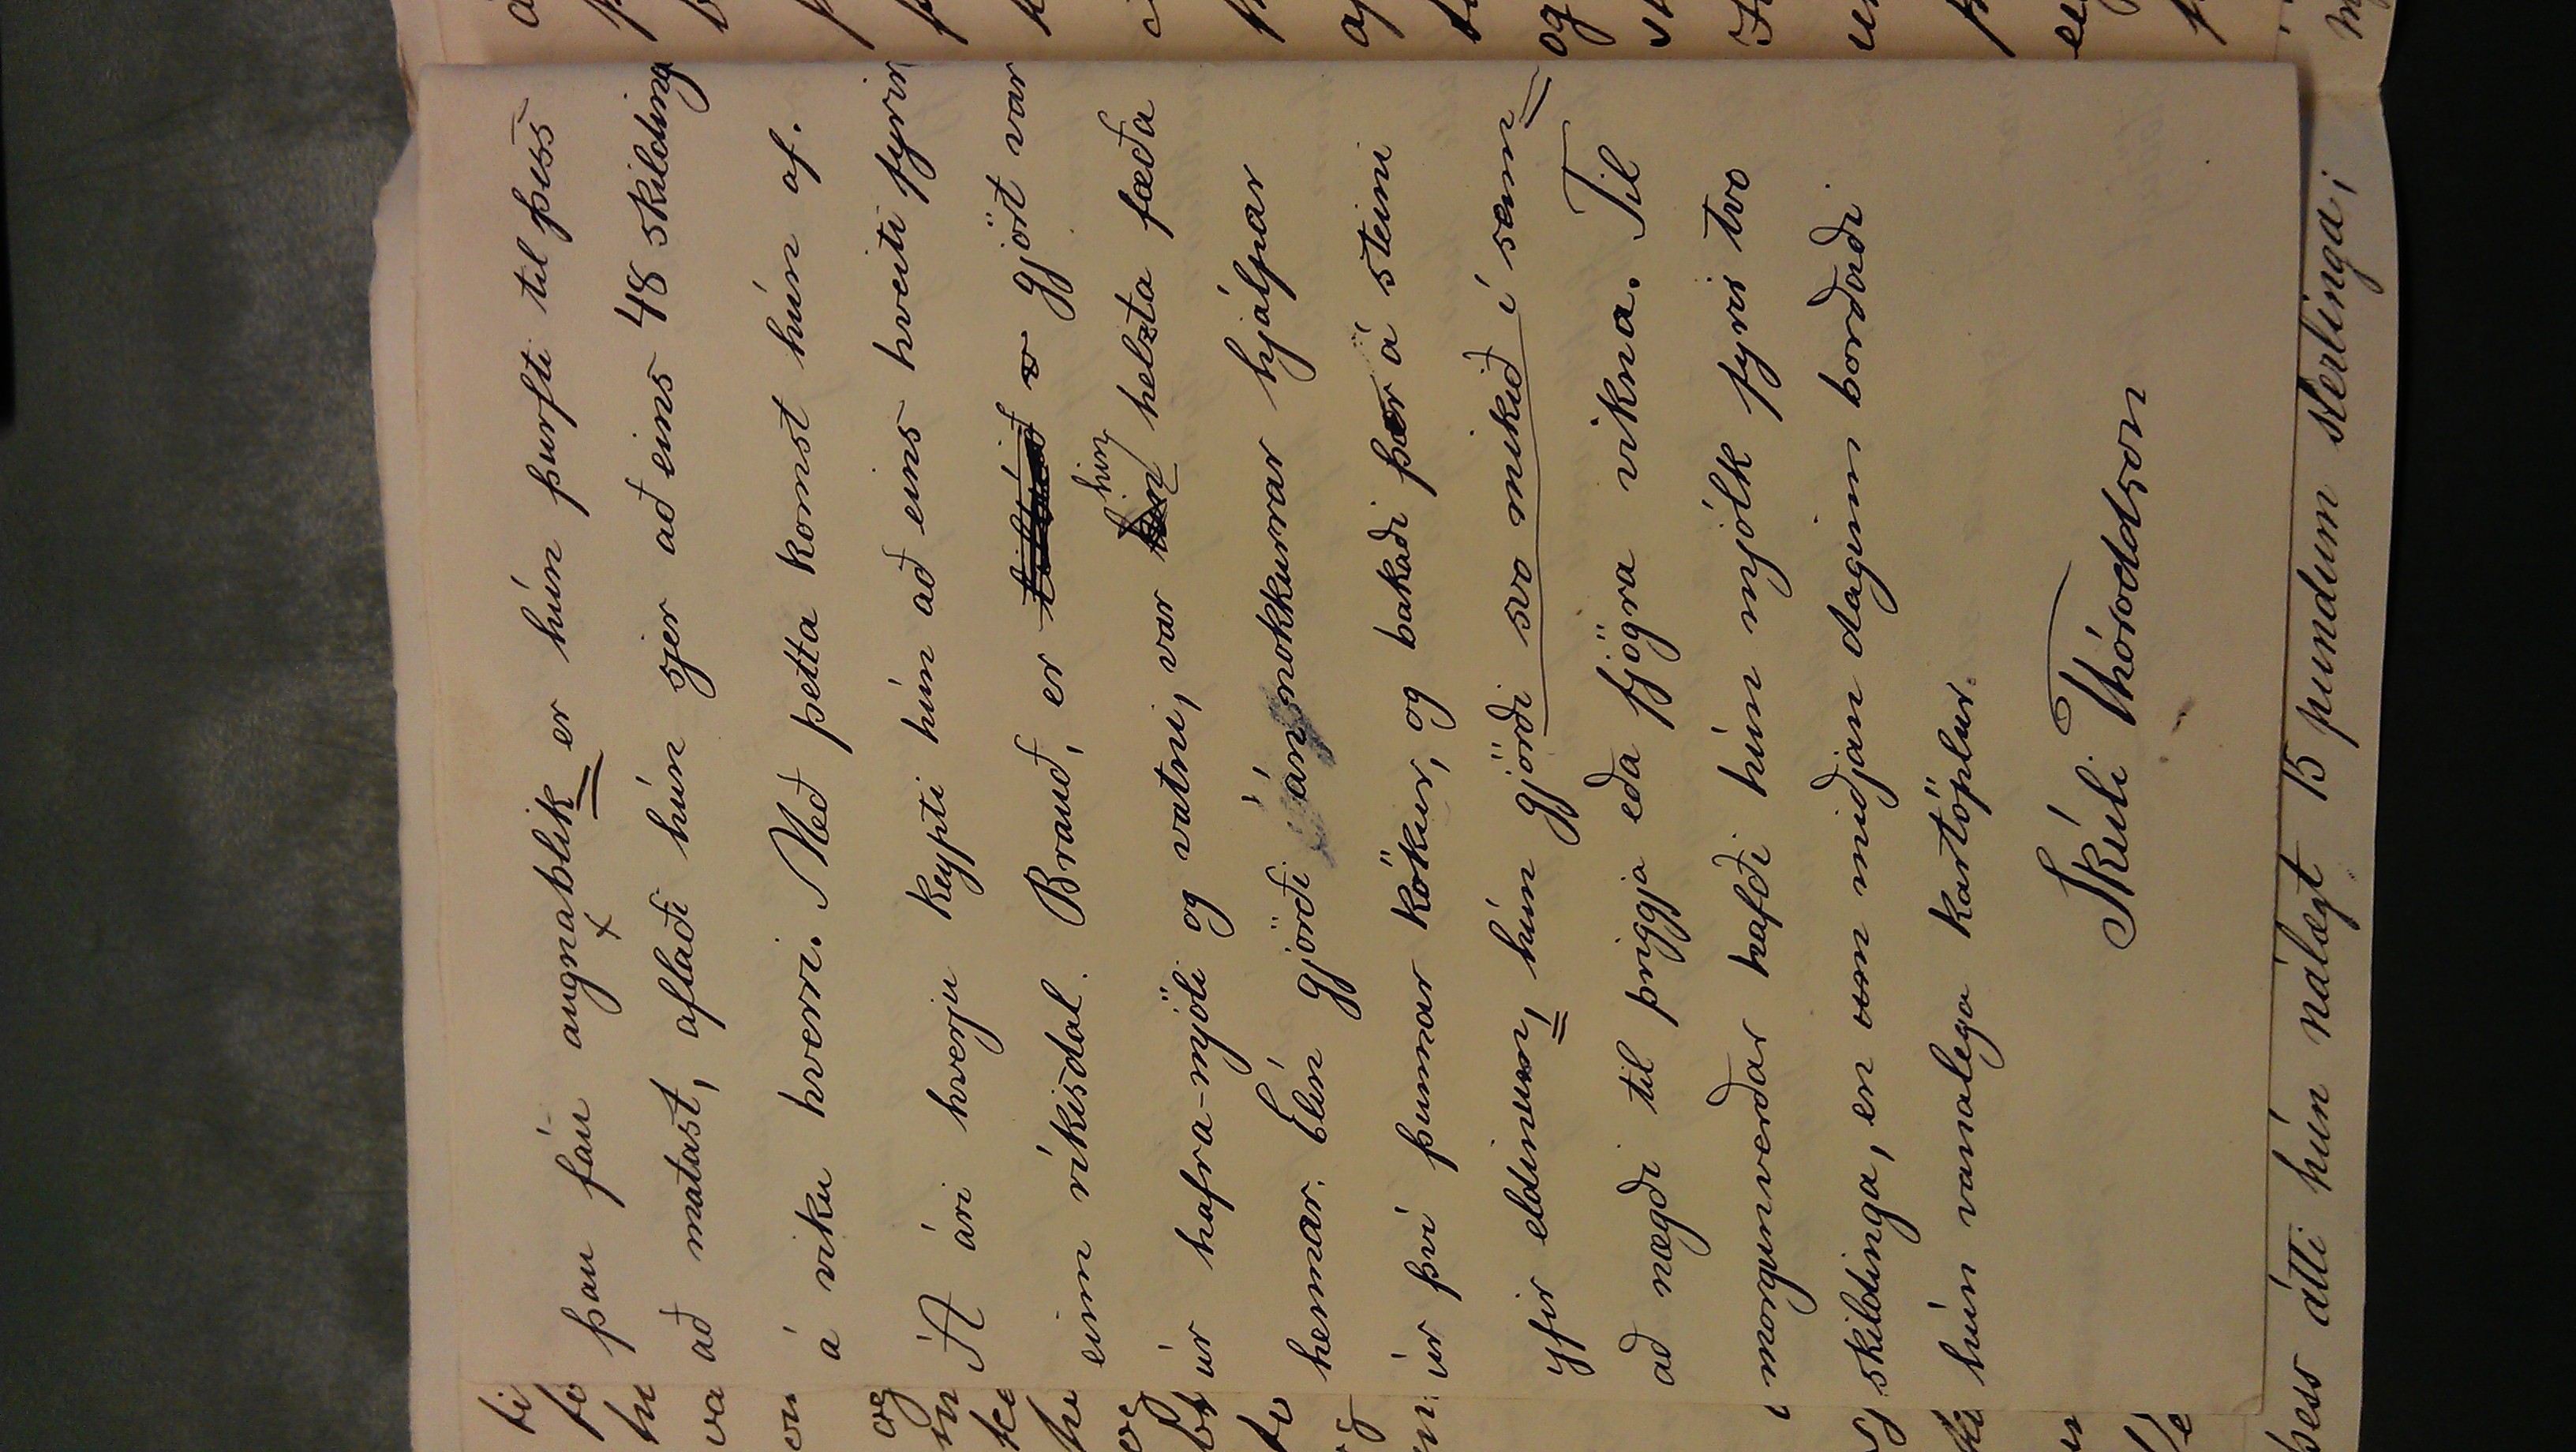 þau fáu augnablik er hún þurfti til þess
að matast, aflaði hún sjer að eins 48 skilding
á viku hverri. Með þetta komst hún af.
Á ári hverju keypti hún að eins hveiti fyrir
einn ríkisdal. Brauð, er v gjört var
úr hafra-mjöli og vatni, var hin helzta fæða
hennar. Elín gjörði ámsnokkurrar hjálpar
úr því þunnar kökur, og bakaði þær á steini
yfir eldinum, hún gjörði svo mikið í senn
að nægði til þriggja eða fjögra vikna. Til
morgunverðar hafði hún mjólk fyrir tvo
skildinga, en um miðjan daginn borðaði
hún vanalega kartöplur.
Skúli Thóroddson
þess átti hún nálægt 15 pundum sterlinga;